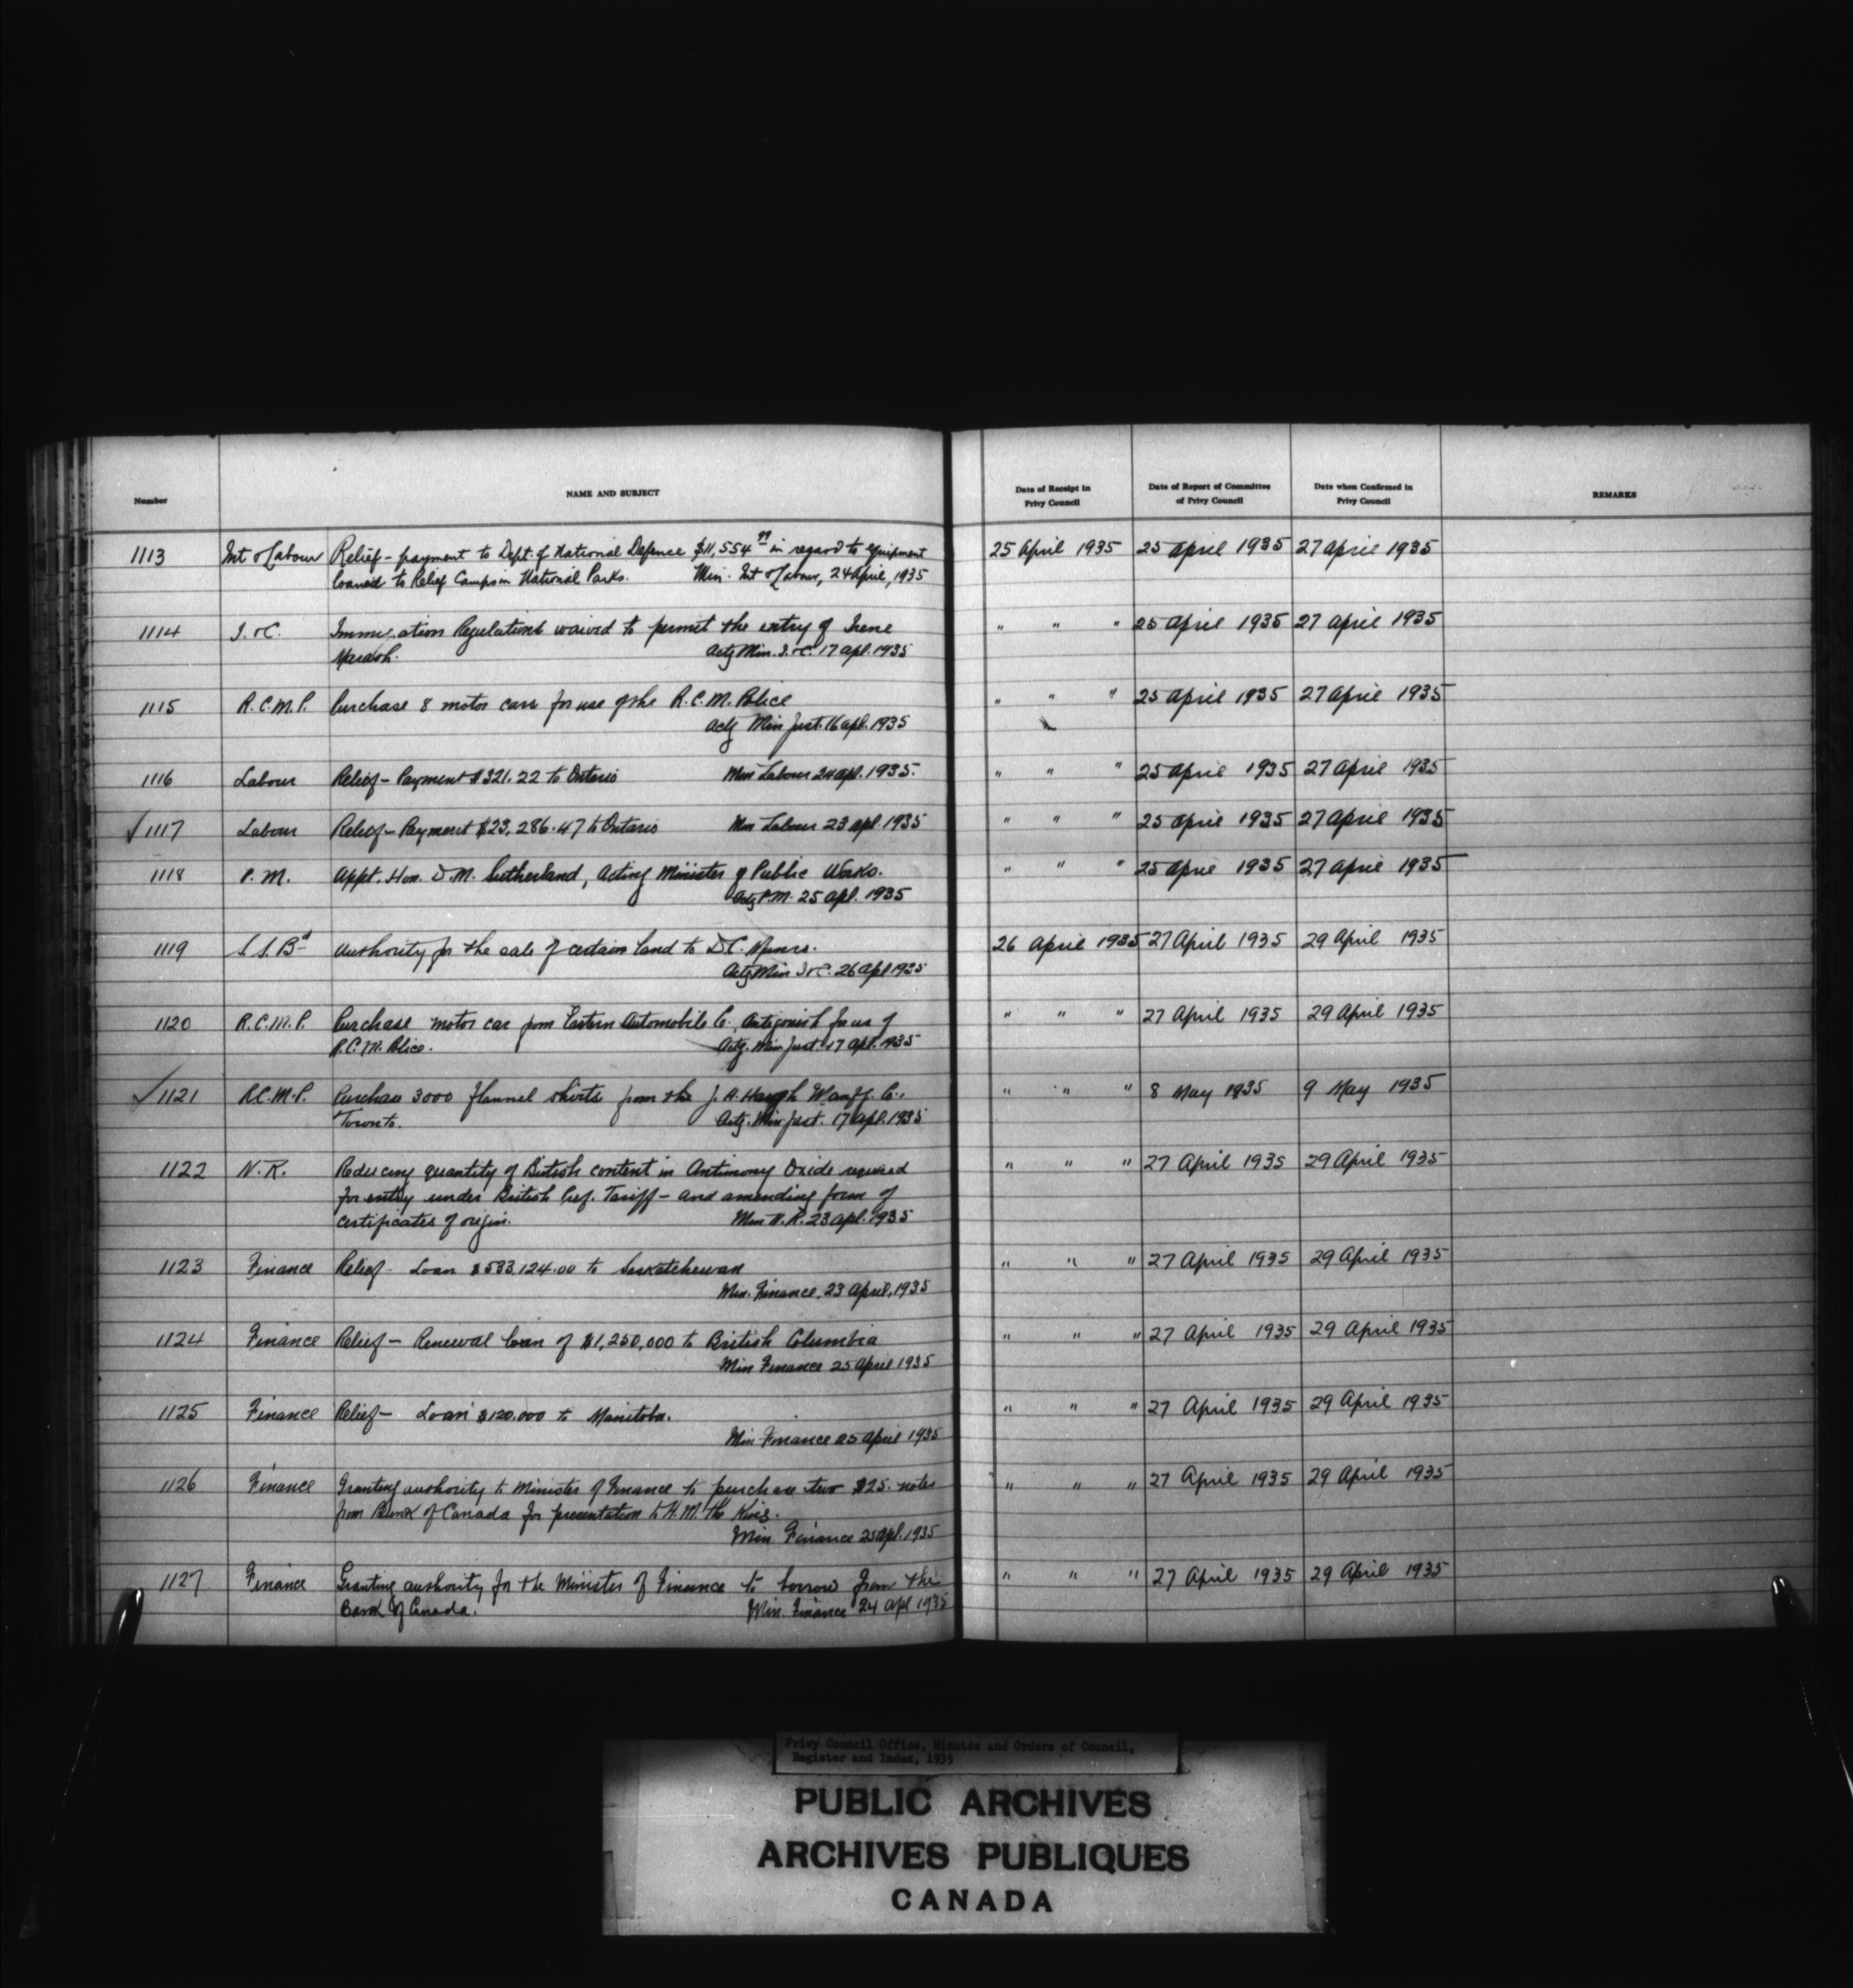 Number NAME AND SUBJECT Date of Receipt in Privy Council Date of Report of Committee of Privy Council Date when Confirmed in Privy Council REMARKS
1113 Int & Labour Relief - payment to Dept. of National Defence $11,554 in regard to equipment 25 April 1935 25 April 1935 27 April 1935
loaned to Relief Camps in National Parks. Min. Int & Labour, 24 April, 1935
1114 I. & C. Immigration Regulations waived to permit the entry of Irene " " " 25 April 1935 27 April 1935
Actg Min. I. & C. 17 Apl. 1935
1115 R.C.M.P. Purchase 8 motor cars for use of the R.C.M. Police " " " 25 April 1935 27 April 1935
Actg Min Just. 16 Apl. 1935
1116 Labour Relief - Payment $321.22 to Ontario Min Labour 24 Apl. 1935. " " " 25 April 1935 27 April 1935
✓ 1117 Labour Relief - Payment $23,286.47 to Ontario Min Labour 23 Apl 1935 " " " 25 April 1935 27 April 1935
1118 P.M. Appt. Hon. D.M. Sutherland, Acting Minister of Public Works. " " " 25 April 1935 27 April 1935
Actg P.M. 25 Apl. 1935
1119 S.S. Bd Authority for the sale of certain land to D.C. 26 April 1935 27 April 1935 29 April 1935
Actg Min I & C. 26 Apl 1935
1120 R.C.M.P. Purchase motor car from Eastern Automobile Co., Antigonish for use of " " " 27 April 1935 29 April 1935
R.C.M. Police. Actg. Min Just. 17 Apl. 1935
✓ 1121 R.C.M.P. Purchase 3000 flannel shirts from the J.A. Haugh Manfg. Co., " " " 8 May 1935 9 May 1935
Toronto. Actg. Min Just. 17 Apl. 1935
1122 N.R. Reducing quantity of British content in Antimony Oxide required " " " 27 April 1935 29 April 1935
for entry under British Pref. Tariff - and amending form of
certificates of origin. Min N.R. 23 Apl. 1935
1123 Finance Relief - Loan $533,124.00 to Saskatchewan " " " 27 April 1935 29 April 1935
Min. Finance, 23 April, 1935
1124 Finance Relief - Renewal loan of $1,250,000 to British Columbia " " " 27 April 1935 29 April 1935
Min Finance 25 April 1935
1125 Finance Relief - Loan $120,000 to Manitoba. " " " 27 April 1935 29 April 1935
Min Finance 25 April 1935
1126 Finance Granting authority to Minister of Finance to purchase two $25. notes " " " 27 April 1935 29 April 1935
from Bank of Canada for presentation to H.M. the King.
Min Finance 25 Apl. 1935
1127 Finance Granting authority for the Minister of Finance to borrow from the " " " 27 April 1935 29 April 1935
Bank of Canada. Min. Finance 24 Apl 1935
Privy Council Office, Minutes and Orders of Council,
Register and Index, 1935
PUBLIC ARCHIVES
ARCHIVES PUBLIQUES
CANADA